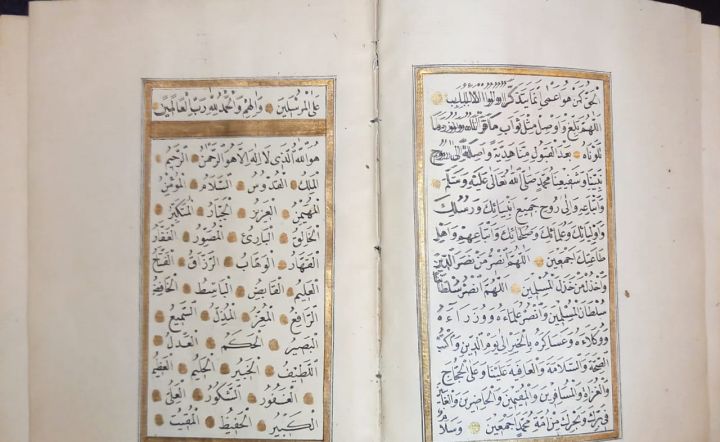 الحق كمن هو اعمى انما يتذكر اولوا الالباب
اللهم بلغ واوصل مثل ثواب ما قرأناه ونور ما
تلوناه بعد القبول منا هدية واصلة الى روح
نبينا وشفيعنا محمد صلى الله تعالى عليه وسلم
واتباعه والى روح جميع انبيائك ورسلك
واوليائك وعلمائك وصلحائك واتباعهم واهل
طاعتك اجمعين اللهم انصر من نصر الدين
واخذل من خذل المسلمين اللهم انصر سلطاننا
سلطان المسلمين وانصر علماءه ووزراءه
ووكلاءه وعساكره بالخير الى يوم الدين واكتب
الصحة والسلامة والعافية علينا وعلى الحجاج
والغزاة والمسافرين والمقيمين والحاضرين والغائبين
في برك وبحرك من امة محمد اجمعين وسلام
على المرسلين والحمد لله رب العالمين
هو الله الذي لا اله الا هو الرحمن الرحيم
الملك القدوس السلام المؤمن
المهيمن العزيز الجبار المتكبر
الخالق البارئ المصور الغفار
القهار الوهاب الرزاق الفتاح
العليم القابض الباسط الخافض
الرافع المعز المذل السميع
البصير الحكم العدل
اللطيف الخبير الحليم العظيم
الغفور الشكور العلي
الكبير الحفيظ المقيت